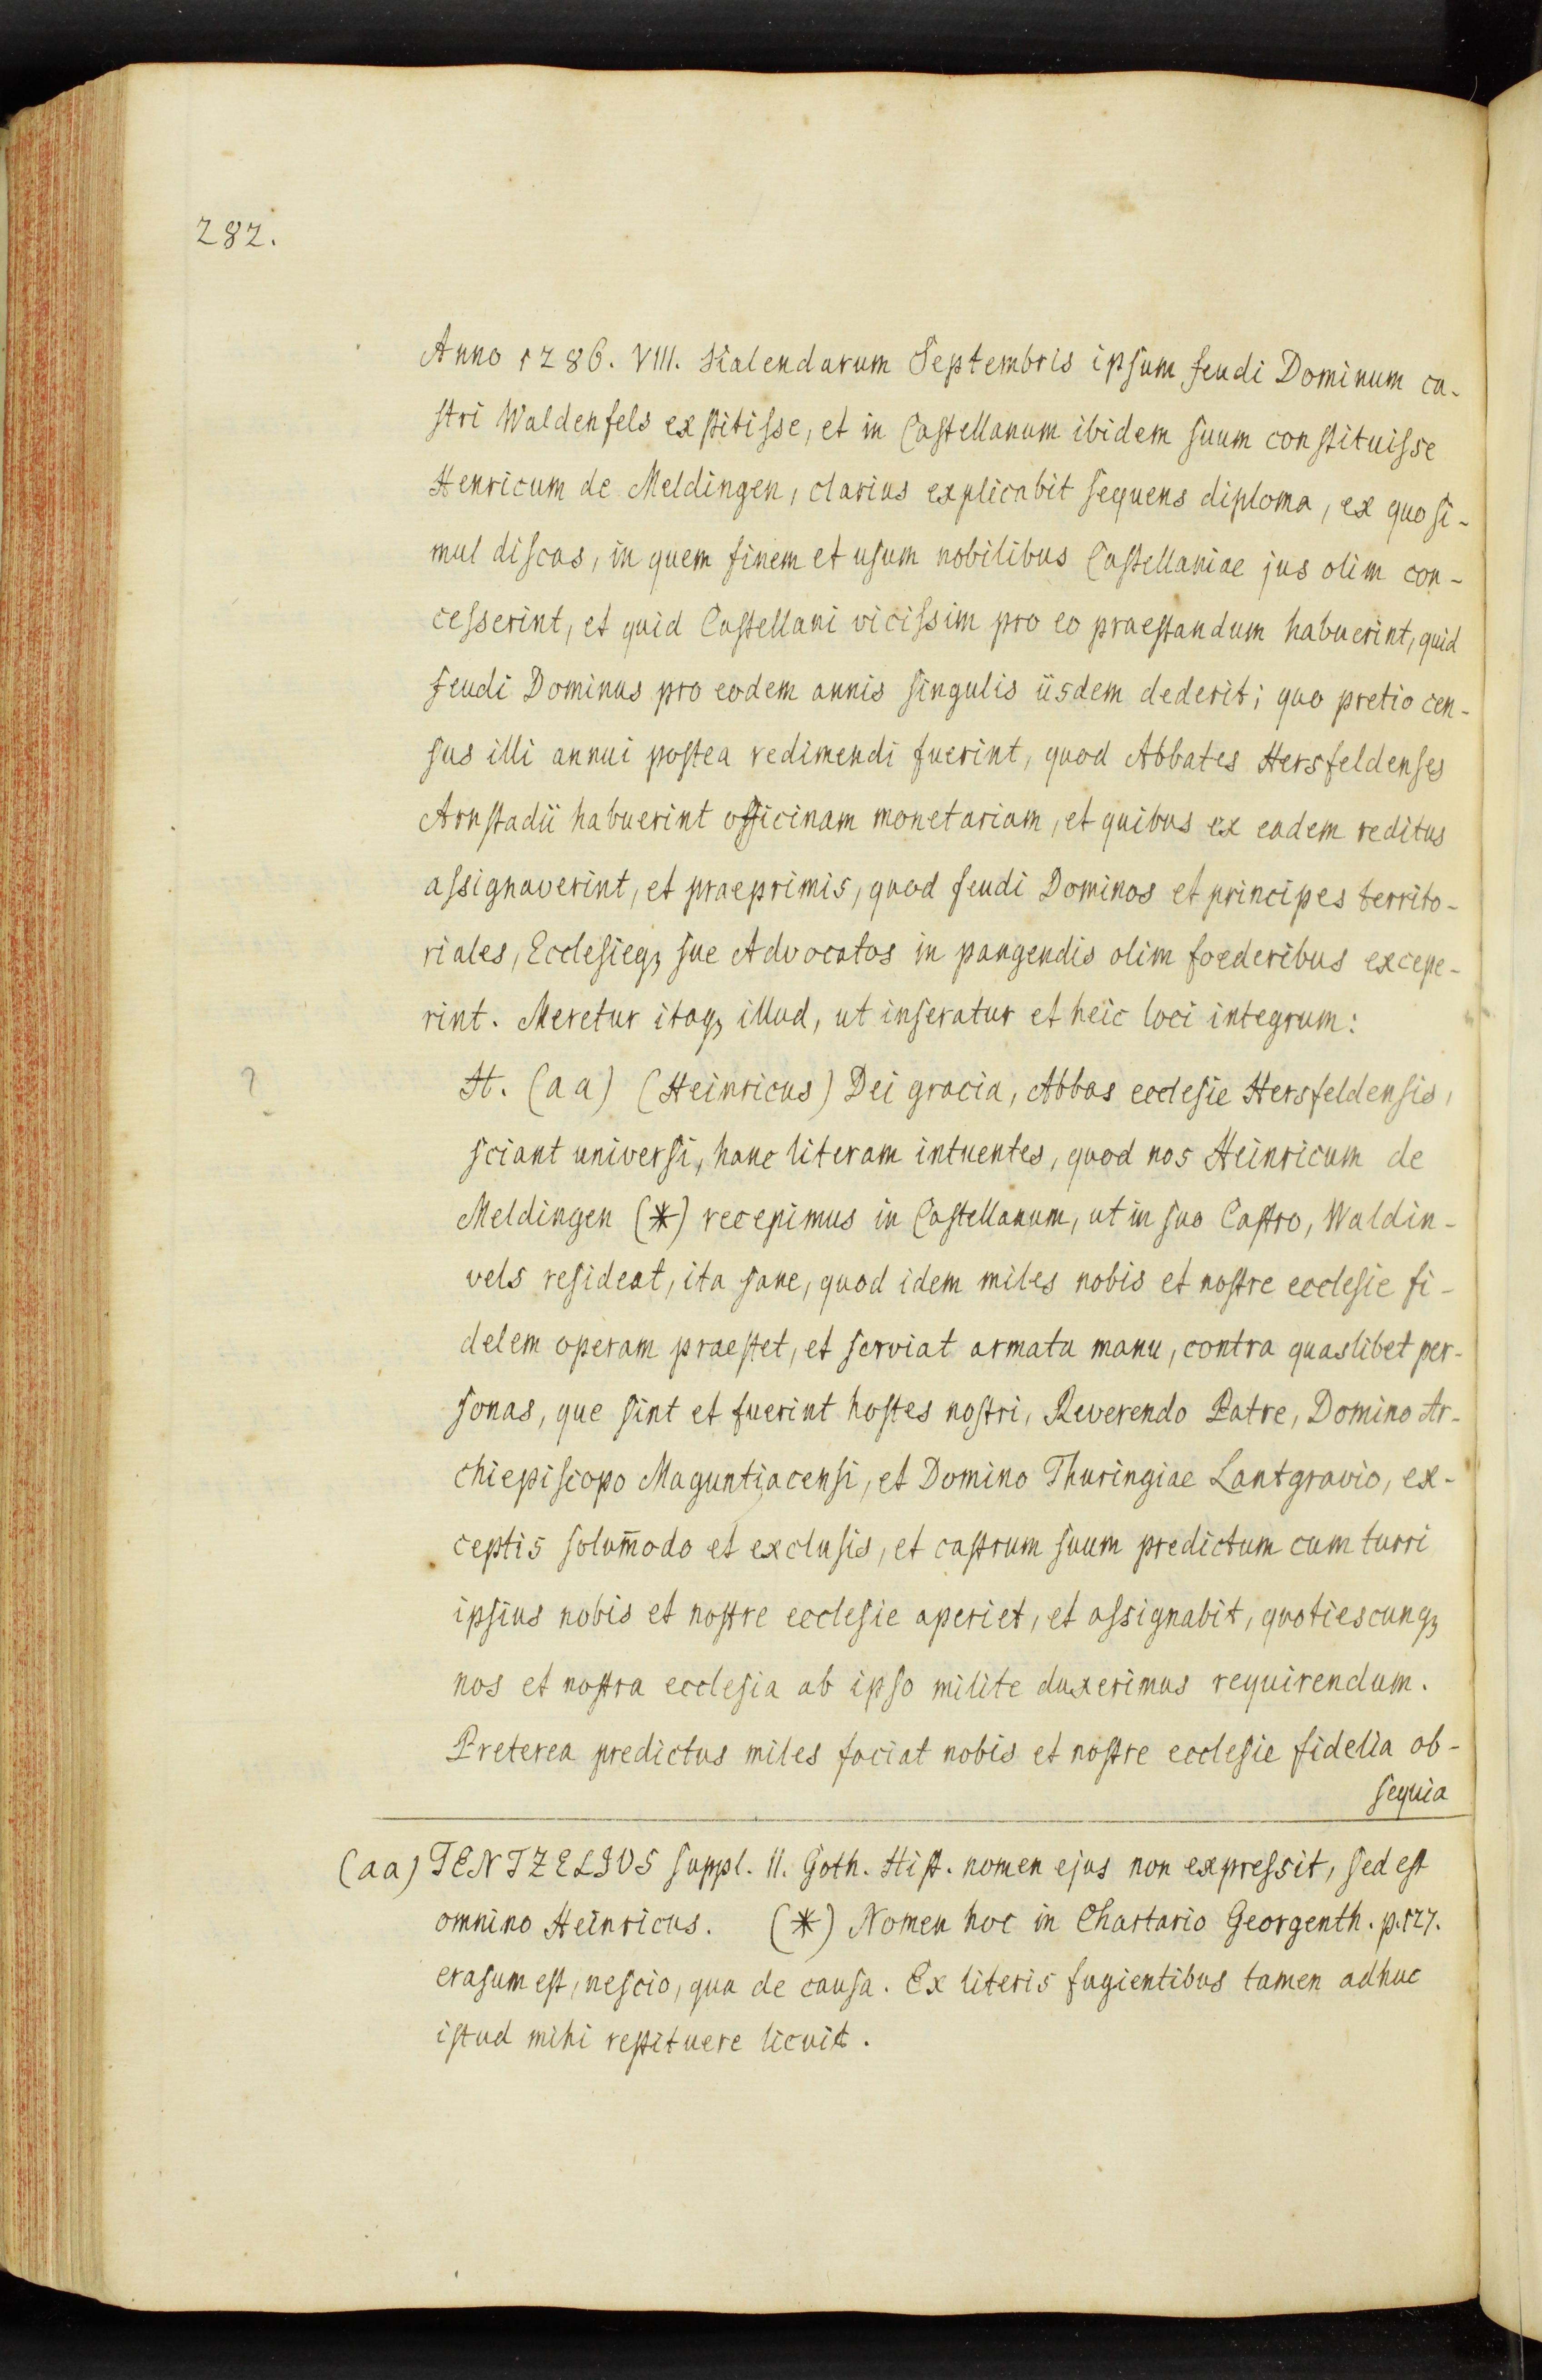 282.
Anno 1286. VIII. Kalendarum Septembris ipsum feudi Dominum ca-
stri Waldenfels exstitisse, et in Castellanum ibidem suum constituisse
Henricum de Meldingen, clarius explicabit sequens diploma, ex quo si-
mul discas, in quem finem et usum nobilibus Castellaniae jus olim con-
cesserint, et quid Castellani vicissim pro eo praestandum habuerint, quid
feudi Dominus pro eodem annis singulis iisdem dederit; quo pretio cen-
sus illi annui postea redimendi fuerint, quod Abbates Hersfeldenses
Arnstadii habuerint officinam monetariam, et quibus ex eadem reditus
assignaverint, et praeprimis, quod feudi Dominos et principes territo-
riales, Ecclesieqꝫ sue Advocatos in pangendis olim foederibus excepe-
rint. Meretur itaqꝫ illud, ut inseratur et heic loci integrum:
?
H. (aa) (Heinricus) Dei gracia, Abbas ecclesie Hersfeldensis,
sciant universi, hanc literam intuentes, quod nos Heinricum de
Meldingen (*) recepimus in Castellanum, ut in suo Castro, Waldin-
vels resideat, ita sane, quod idem miles nobis et nostre ecclesie fi-
delem operam praestet, et serviat armata manu, contra quaslibet per-
sonas, que sint et fuerint hostes nostri, Reverendo Patre, Domino Ar-
chiepiscopo Maguntiacensi, et Domino Thuringiae Lantgravio, ex-
ceptis solum̄odo et exclusis, et castrum suum predictum cum turri
ipsius nobis et nostre ecclesie aperiet, et assignabit, quotiescunqꝫ
nos et nostra ecclesia ab ipso milite duxerimus requirendum.
Preterea predictus miles faciat nobis et nostre ecclesie fidelia ob-
sequia
(aa) TENTZELIUS suppl. II. Goth. Hist. nomen ejus non expressit, sed est
omnino Heinricus. (*) Nomen hoc in Chartario Georgenth. p. 127.
erasum est, nescio, qua de causa. Ex literis fugientibus tamen adhuc
istud mihi restituere licuit.